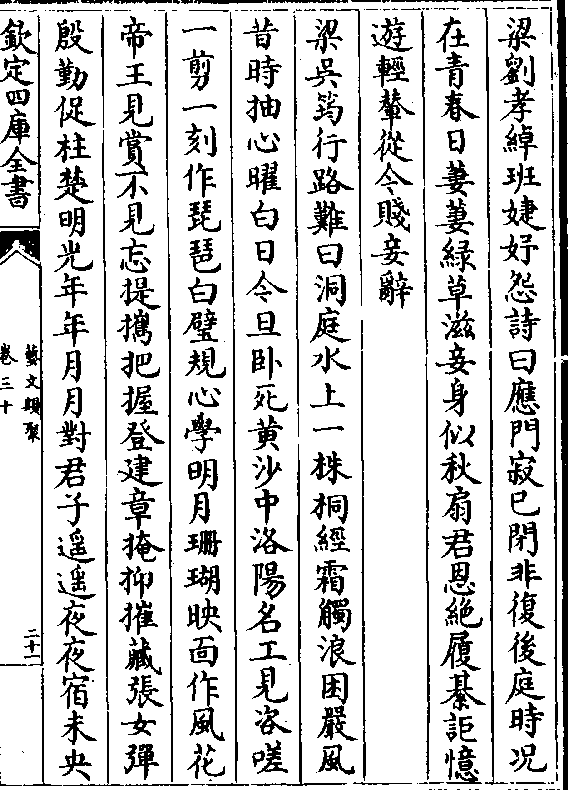 梁劉孝綽班婕妤怨詩曰應門寂已閉非復後庭時况
在青春日萋萋緑草滋妾身似秋扇君恩絶履綦詎憶
遊輕輦從今賤妾辭
梁吳筠行路難曰洞庭水上一株桐經霜觸浪困嚴風
昔時抽心曜白日今旦卧死黄沙中洛陽名工見咨嗟
一剪一刻作琵琶白璧規心學明月珊瑚映面作風花
帝王見賞不見忘提攜把握登建章掩抑摧藏張女彈
殷勤促柱楚明光年年月月對君子遥遥夜夜宿未央
欽定四庫全書
藝文類聚
卷三十
二十一